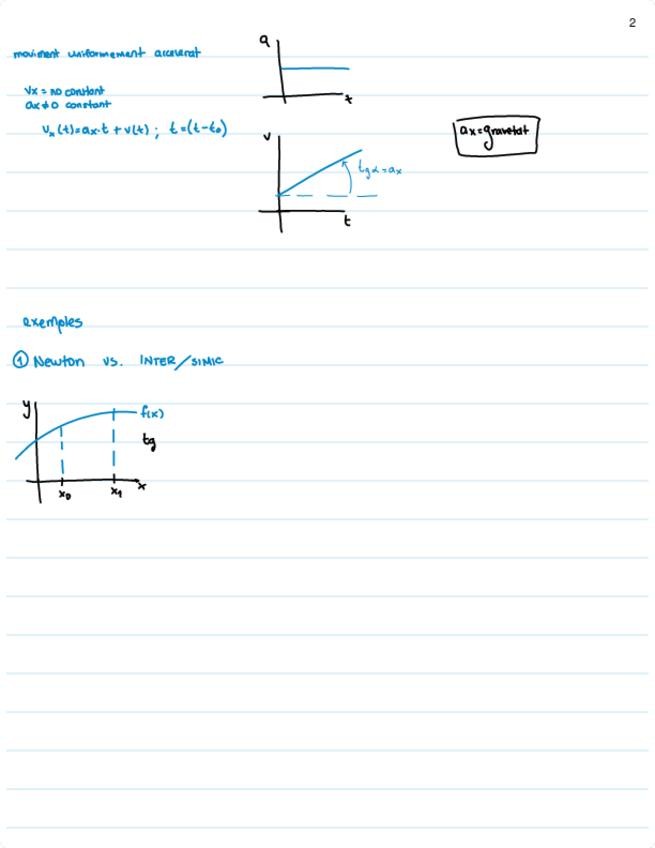 2
moviment uniformement accelerat
vx = no constant
ax ≠ 0 constant
vx(t)=ax·t + v(t) ; t=(t-t₀)
a
t
v
tg α = ax
t
ax = gravetat
exemples
① Newton vs. INTER/SIMIC
y
f(x)
tg
x₀
x₁
x